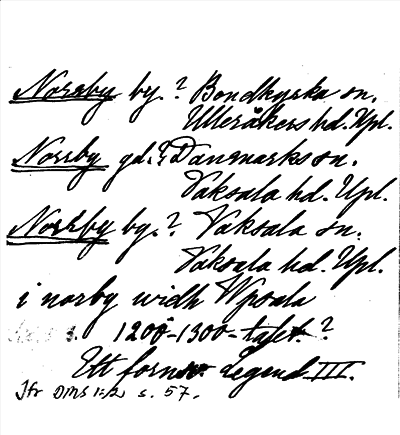 Norrby by.? Bondkyrka sn.
Ulleråkers hd. Upl.
Norrby gd.? Danmarks sn.
Vaksala hd. Upl.
Norrby by.? Vaksala sn.
Vaksala hd. Upl.
i norby widh Wpsala
s. 1200-1300-talet.?
Ett fornsv. Legend. III.
Jfr DMS 1:2 s. 57.